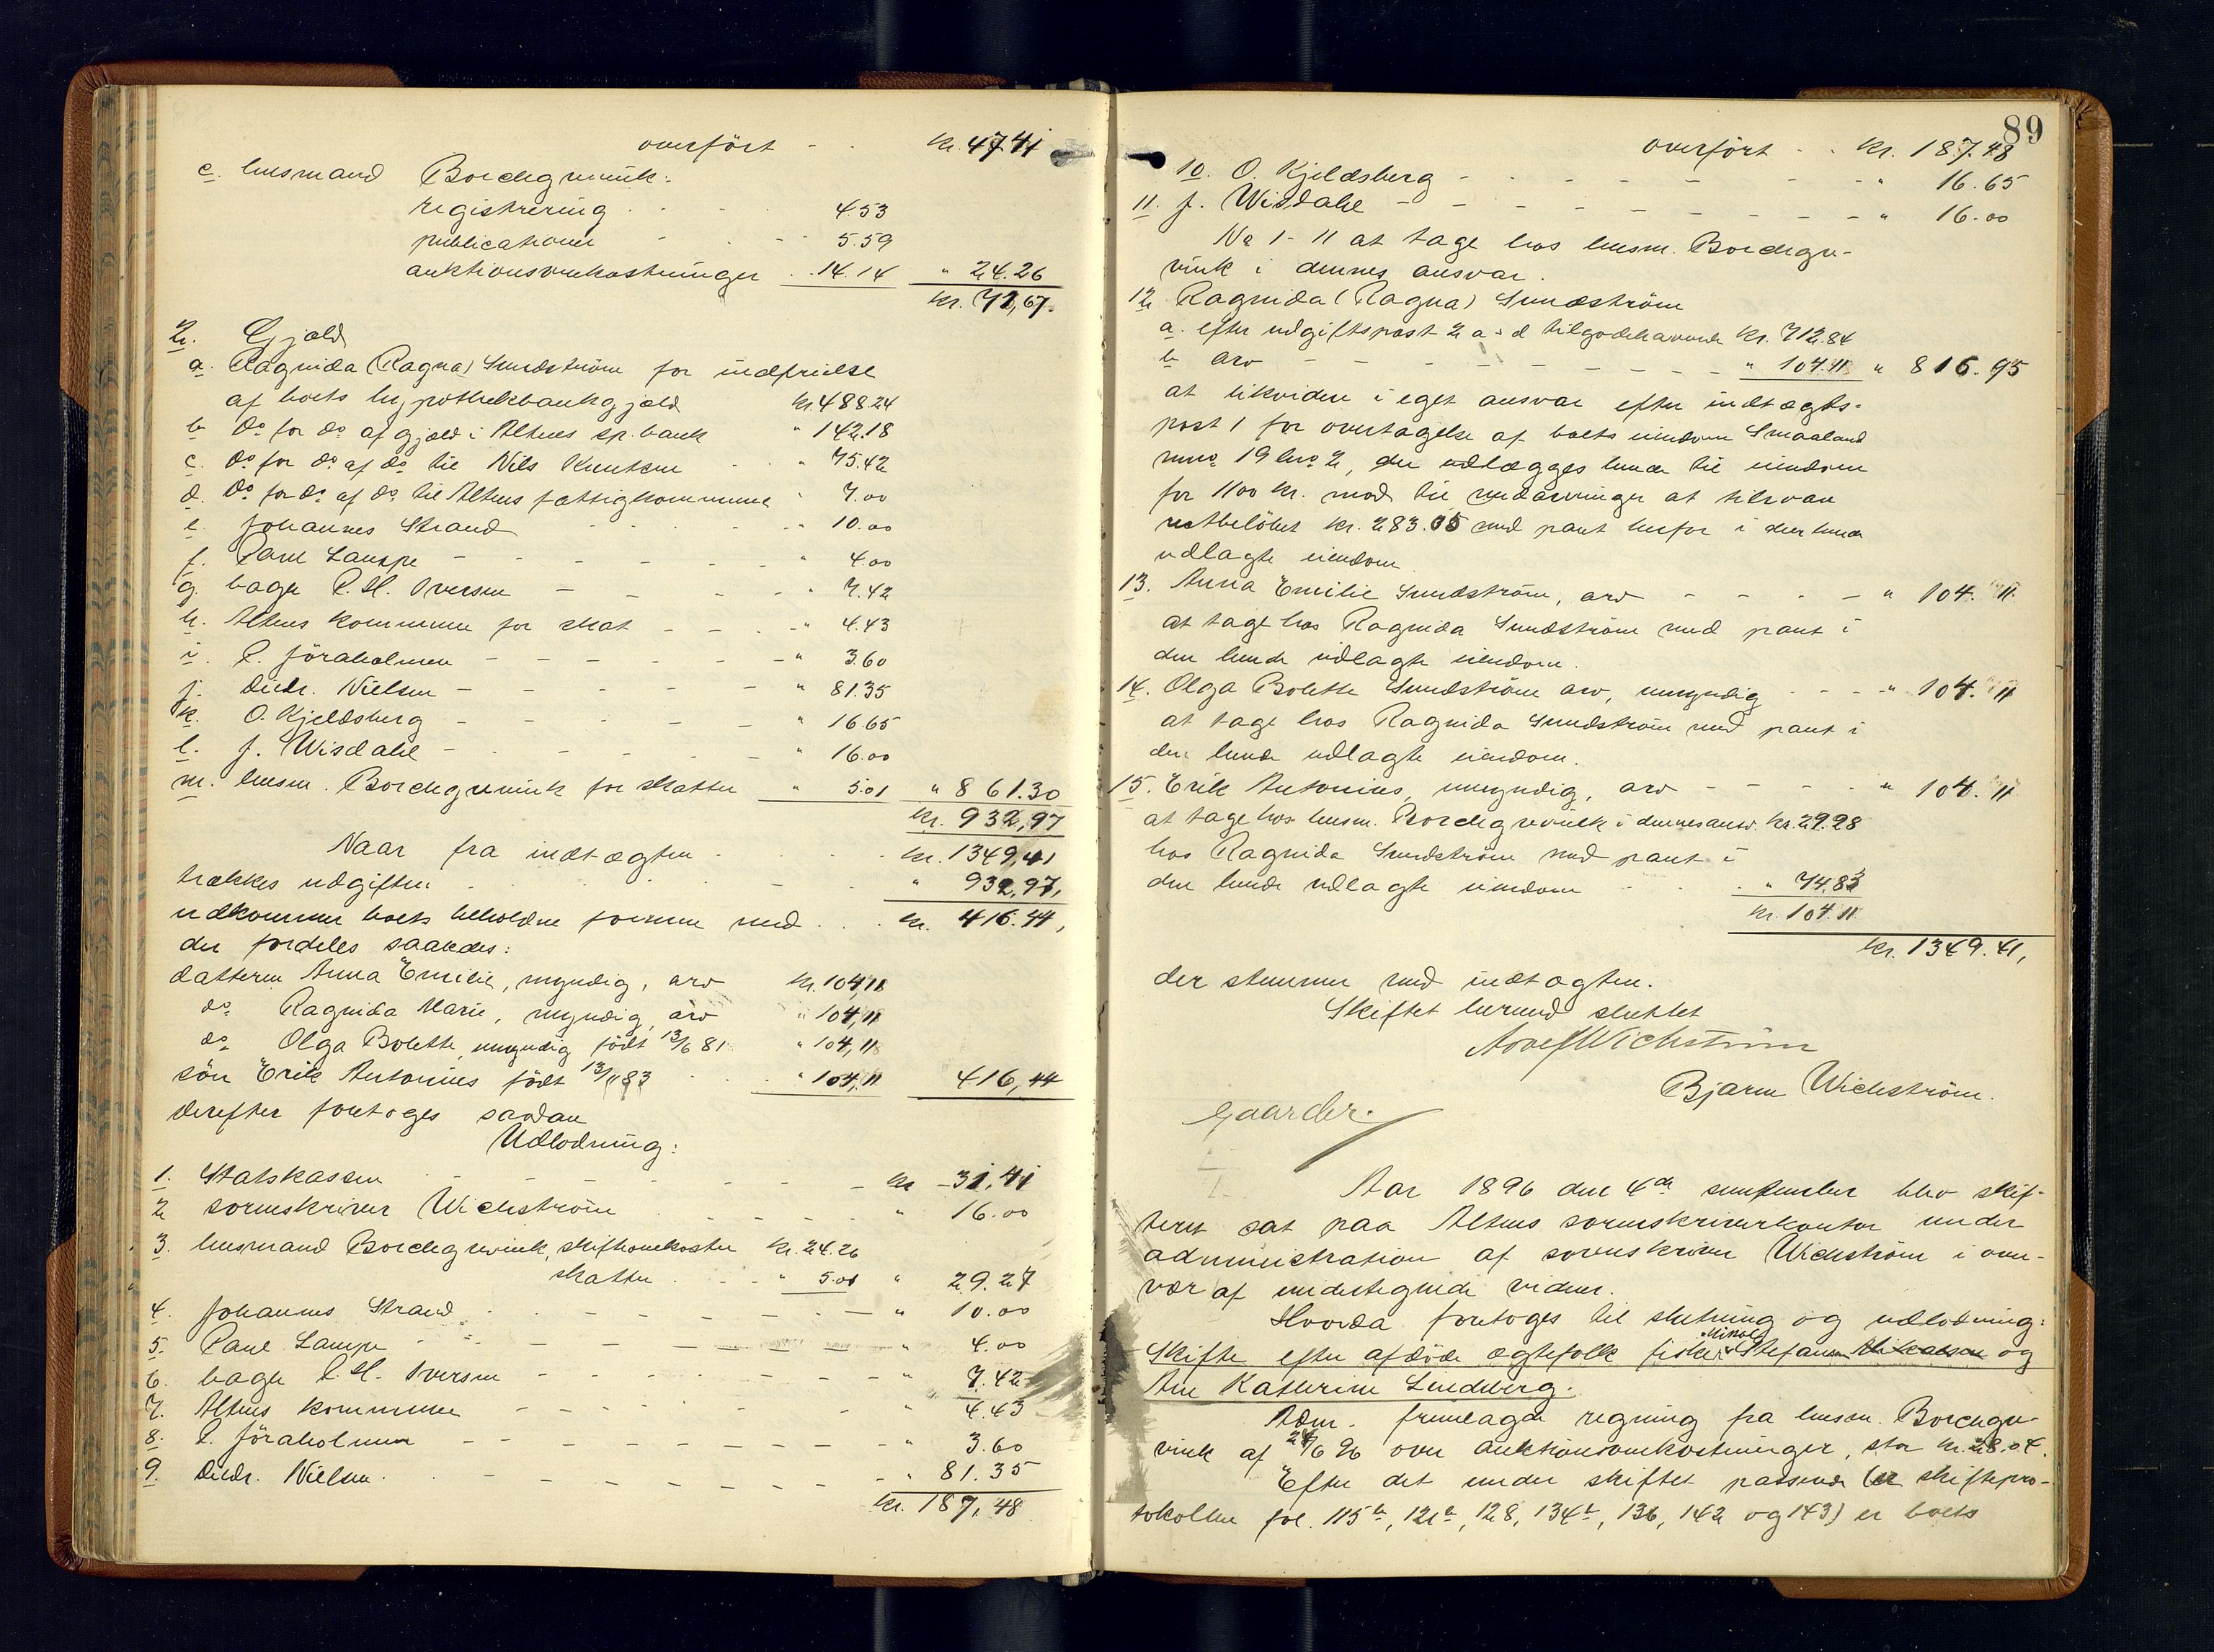 overført - . kr. 47.41
c. lensmand Borchgrevink:
registrering . . . 4.53
publicationer - . - - 5.59
auktionsomkostninger . 14.14 " 24.26
kr. 71,67.
2. Gjæld
a. Ragnida (Ragna) Sundström for indfrielse
af boets hypothekbankgjæld kr. 488.24
b. Do for do af gjæld i Altens sp.bank " 142.18
c. Do for do af do til Nils Knutsen - " 75.42
d. Do for do af do til Altens fattigkommune " 7.00
e. Johannes Strand - - - - " 10.00
f. Paul Lampe - - - - - " 4.00
g. bager P. H. Iversen - - - - " 7.42
h. Altens kommune for skat - - - " 4.43
i. P. Jöraholmen - - - - - - " 3.60
j. Diedr. Nielsen - - - - - " 81.35
k. O. Kjeldsberg - - - - - " 16.65
l. J. Wisdahl - - - - - " 16.00
m. lensm. Borchgrevink for skatter " 5.01 " 861.30
kr. 932,97
Naar fra indtægten . . . kr. 1349,41
trækkes udgiften . . . - - " 932,97,
udkommer boets beholdne formue med . . . kr. 416.44,
der fordeles saaledes:
datteren Anna Emilie, myndig, arv kr. 104,11
do Ragnida Marie, myndig, arv " 104,11
do Olga Bolette, umyndig født 13/6 81 " 104,11
søn Erik Antonius født 13/11 83 . . " 104,11 416,44
derefter foretoges saadan
Udlodning:
1. Statskassen - - - - - - kr. 31,41
2 sorenskriver Wichström - - - - " 16.00
3. lensmand Borchgrevink, skifteomkoster kr. 24.26
skatter . - - " 5.01 " 29.27
4. Johannes Strand . - - - - - " 10.00
5. Paul Lampe - - - - - - " 4.00
6. bager P. H. Iversen - - - - - - " 7.42
7. Altens kommune - - - - - " 4.43
8. P. Jöraholmen - - - - - - - " 3.60
9. Diedr. Nielsen . - - - - - - " 81.35
kr. 187,48
89
overført - . kr. 187.48
10. O. Kjeldsberg - - - - - - " 16.65
11. J. Wisdahl - - - - - - - - " 16.00
No 1-11 at tage hos lensm. Borchgre-
vink i dennes ansvar.
12 Ragnida (Ragna) Sundström
a. efter udgiftspost 2 a-d tilgodehavende kr. 712.84
b arv - - - - - - - " 104.11 " 816.95
at likvidere i eget ansvar efter indtægts-
post 1 for overtagelse af boets eiendom Smaaland
mno 19 bno 2, der udlægges hende til eiendom
for 1100 kr. mod til medarvinger at tilsvare
restbelöbet kr. 283.05 med pant herfor i den hende
udlagte eiendom
13. Anna Emilie Sundström, arv - - - - " 104.11
at tage hos Ragnida Sundström med pant i
den hende udlagte eiendom.
14. Olga Bolette Sundström arv, umyndig - - - " 104.11
at tage hos Ragnida Sundström med pant i
den hende udlagte eiendom.
15. Erik Antonius, umyndig, arv - - - - " 104.11
at tage hos lensm. Borchgrevink i dennes ansv. kr. 29.28
hos Ragnida Sundström med pant i
den hende udlagte eiendom - - . " 74.83
kr. 104.11
kr. 1349.41,
der stemmer med indtægten.
Skiftet hermed sluttet
Wichström
Bjarne Wichström.
Gaarder.
Aar 1896 den 4de september blev skif-
teret sat paa Altens sorenskriverkontor under
administration af sorenskriver Wichström i over-
vær af undertegnede vidner.
Hvorda foretoges til slutning og udlodning:
Skifte efter afdöde ægtefolk fisker Mikael Stefanus Mikalsen og
Ane Kathrine Lindberg.
Adm. fremlagde regning fra lensm. Borchgre-
vink af 24/6 96 over auktionsomkostninger, stor kr. 28.04.
Efter det under skiftet passerede (se skiftepro-
tokollen fol. 115b, 121b, 128, 134b, 136, 142 og 143) er boets